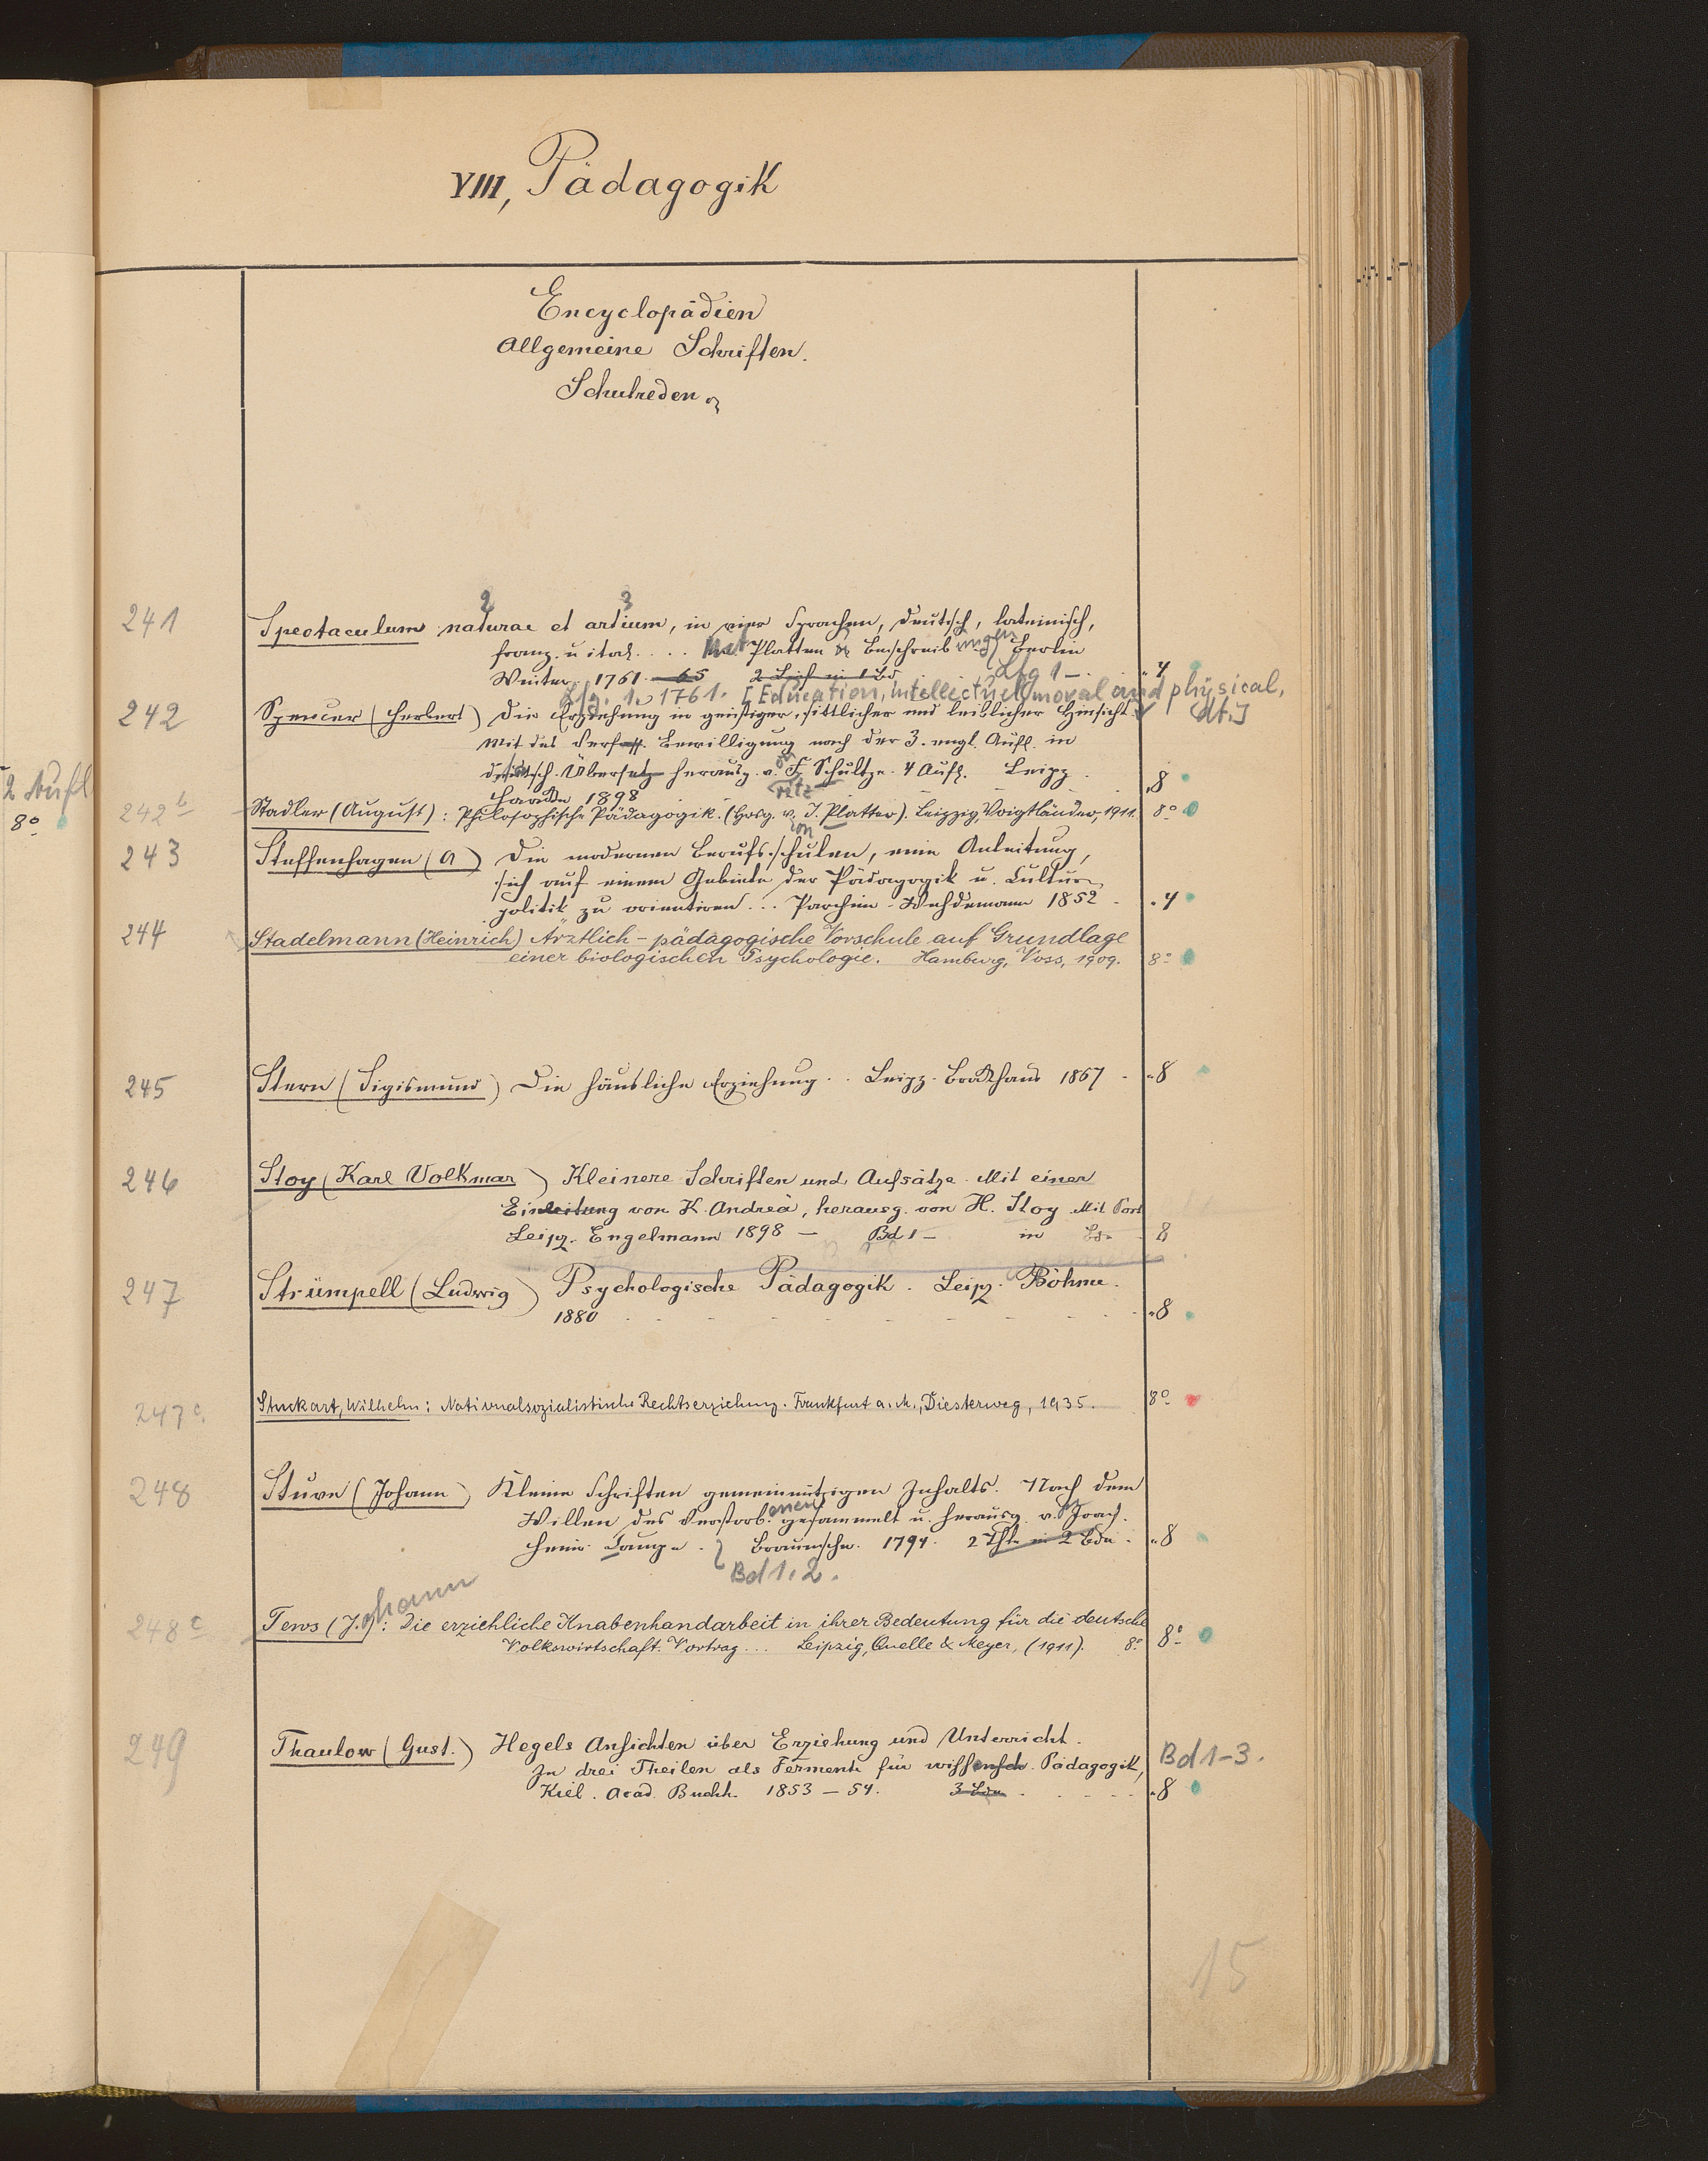 VIII, Pädagogik
Encyclopädien
Allgemeine Schriften.
Schulreden.
2 3
241 Spectaculum naturae et artium, in vier Sprachen, deutsch, lateinisch,
franz. u ital. ... Mit Platten Beschreibungen Berlin
Winter. 1761-65 2 in 1 Bd Lfg 1- „4
Lfg. 1. 1761. [Education, intellectuel, moral and physical,
242 Spencer (Herbert) Die Erziehung in geistiger, sittlicher und leiblicher Hinsicht (dt.)]
Mit des Verfass. Bewilligung nach der 3. engl. Aufl. in
deutsch. Übersetz herausg. von F. Schultze. 4 Aufl. Leipz. „8
Haacke 1898 ritz
2 Aufl
8°
242b Stadler (August): Philosophische Pädagogik. (Hrsg. von J. Platter). Leipzig, Voigtländer, 1911. 8°
243 Steffenhagen (A) Die modernen Berufsschulen, eine Anleitung,
sich auf einem Gebiete der Pädagogik u. Cultur
politik zu orientiren ... Parchim - Wehdemann 1852 - „4
244 Stadelmann (Heinrich) Ärztlich-pädagogische Vorschule auf Grundlage
einer biologischen Psychologie. Hamburg, Voss, 1909. 8°
245 Stern (Sigismund) Die häusliche Erziehung .. Leipz. Brockhaus 1867 - „8
246 Stoy (Karl Volkmar) Kleinere Schriften und Aufsätze. Mit einer
Einleitung von K. Andreä, herausg. von H. Stoy Mit Port
Leipz. Engelmann 1898 - Bd 1 - in Bdn 8
247 Strümpell (Ludwig) Psychologische Pädagogik. Leipz. Böhme.
1880 „8
247c. Stuckart, Wilhelm: Nationalsozialistische Rechtserziehung. Frankfurt a. M., Diesterweg, 1935. 8°
248 Stuve (Johann) Kleine Schriften gemeinnützigen Inhalts. Nach dem
Willen des Verstorbenen gesammelt u. herausg. v. Joach.
Heinr. Campe. Braunschw. 1794. 2 Thle in 2 Bdn. „8
Bd 1. 2.
248c Tews (Johann): Die erziehliche Knabenhandarbeit in ihrer Bedeutung für die deutsche
Volkswirtschaft. Vortrag ... Leipzig, Quelle & Meyer, (1911). 8° 8°
249 Thaulow (Gust.) Hegels Ansichten über Erziehung und Unterricht.
In drei Theilen als Fermente für wissensch. Pädagogik, Bd 1-3.
Kiel. Acad. Buchh. 1853-54. 3 Bde „8
15